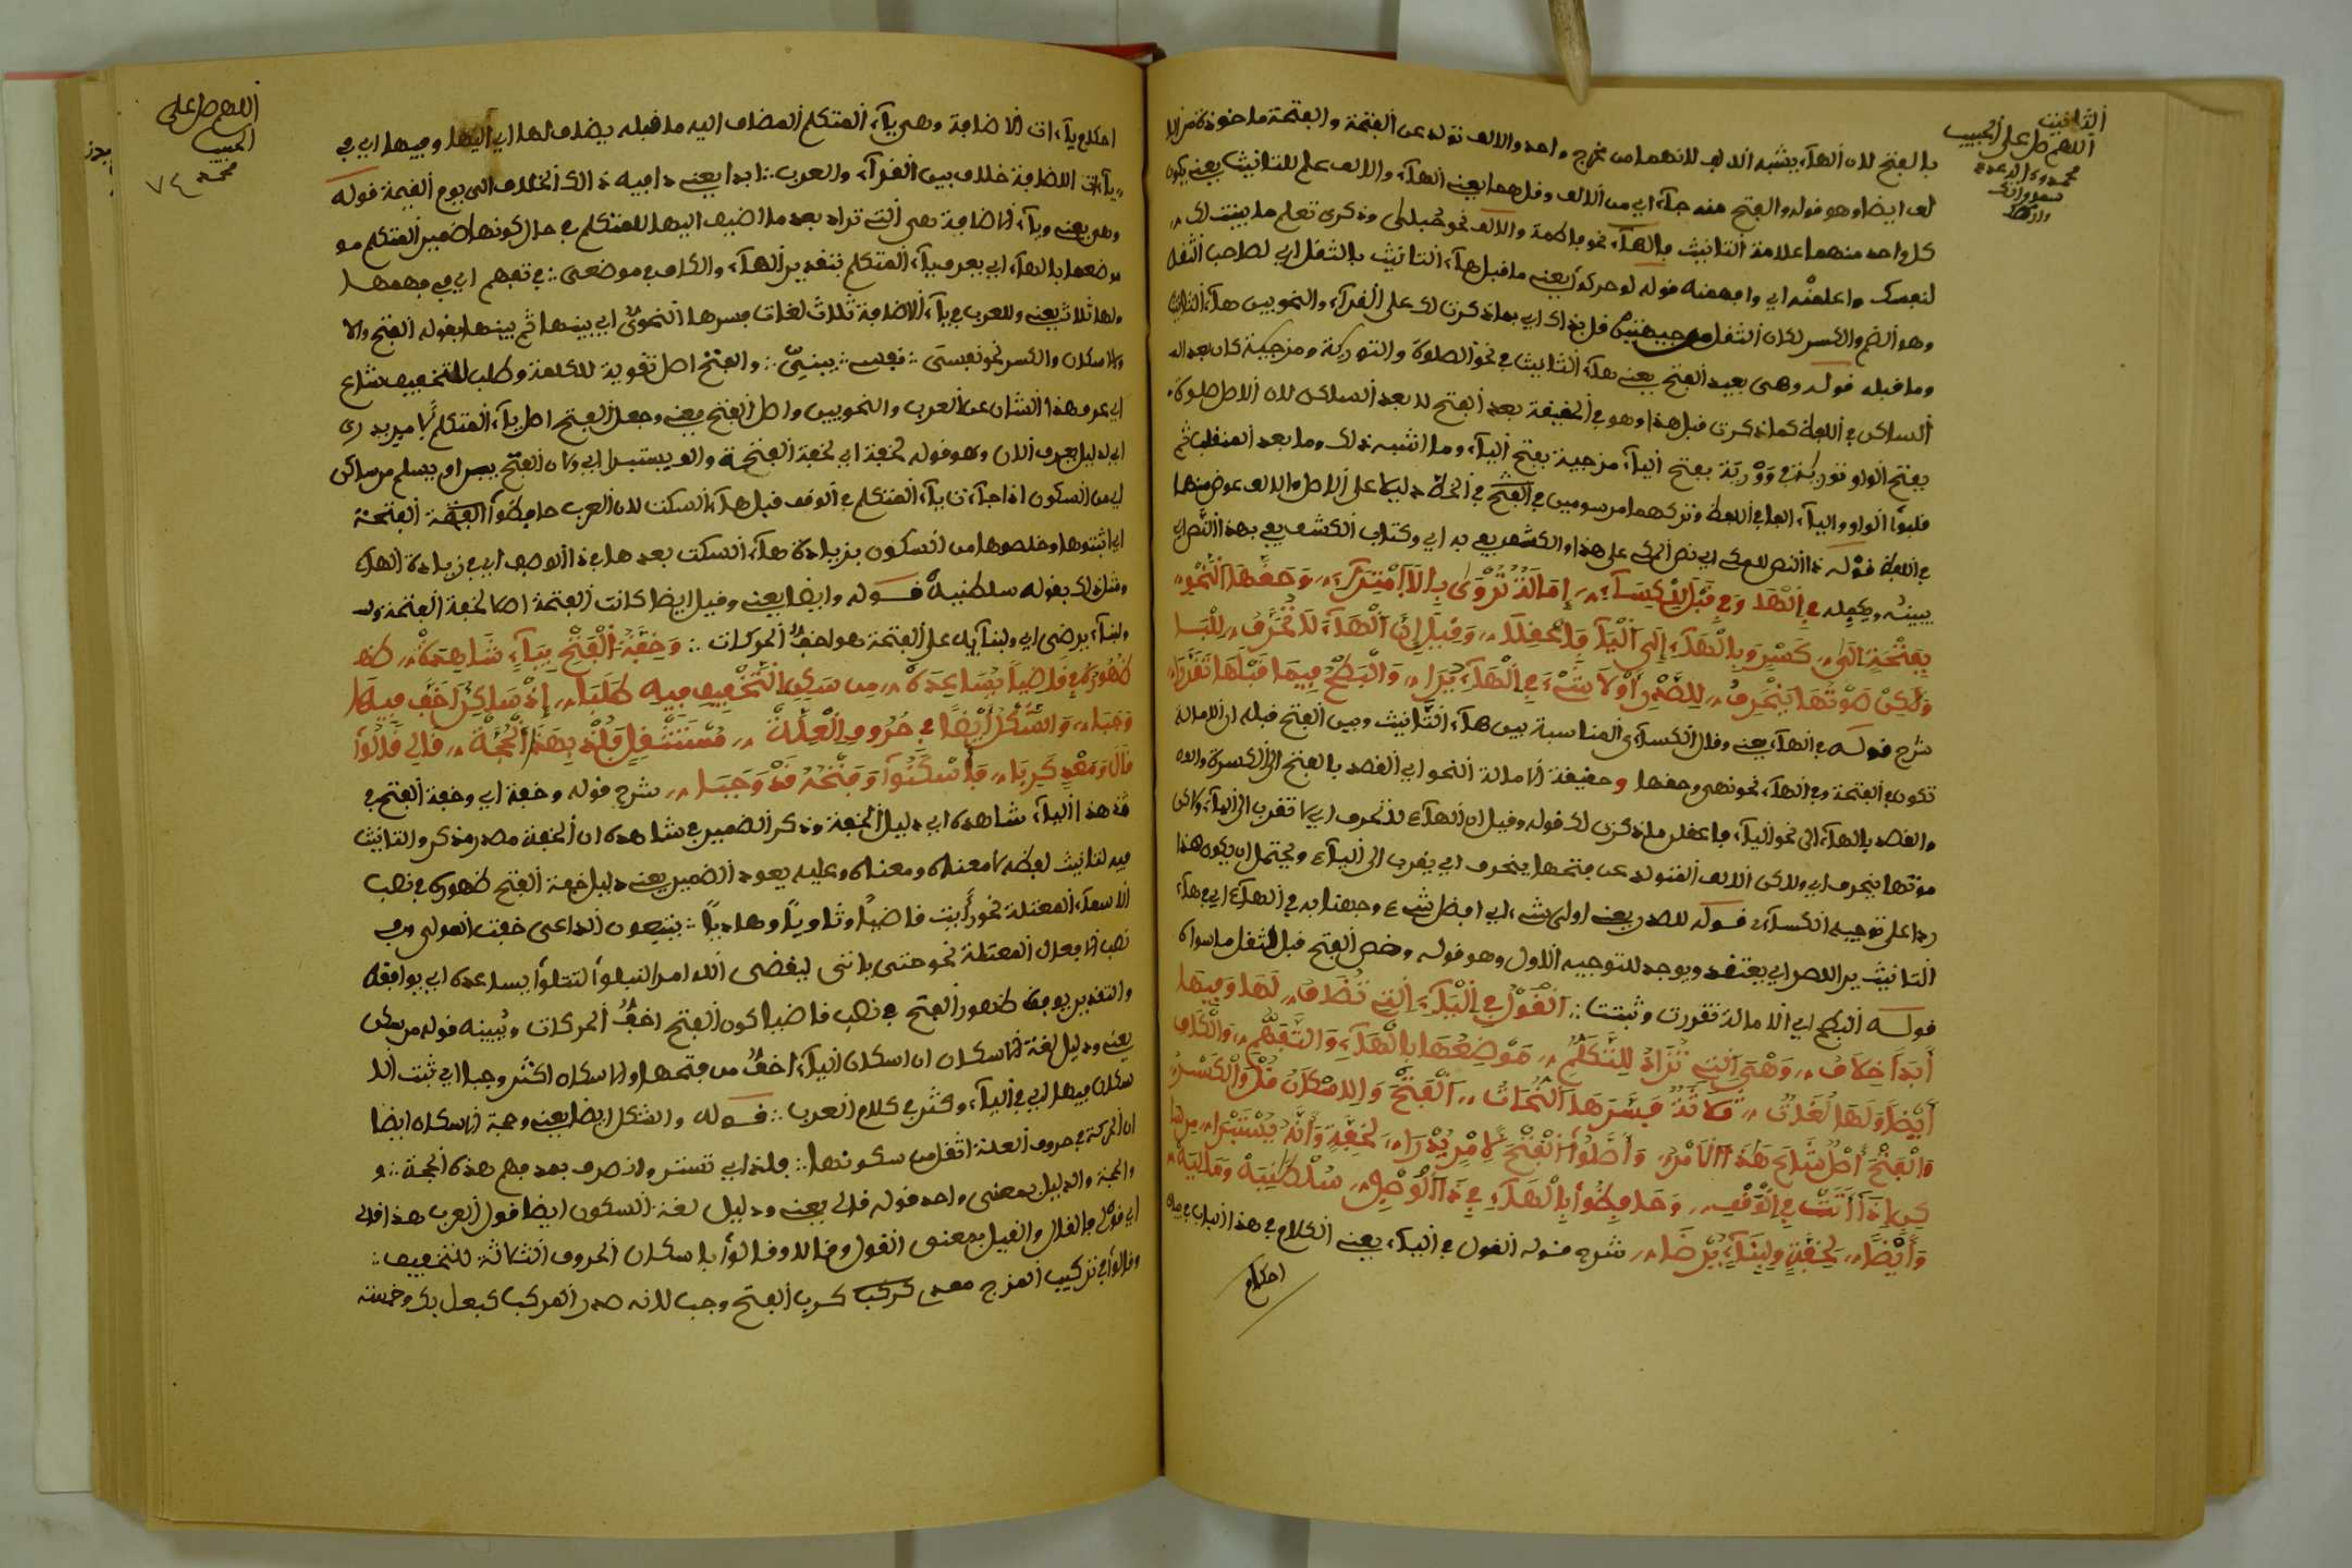 التانيث
اللهم صل على الحبيب
بالفتح لان الهاء يشبه الالف لانهما من مخرج واحد والالف تولد عن الفتحة والفتحة ماخوذة من الا
لف ايضا وهو قوله والفتح منه جاء اي من الالف وقل هما يعني الهاء والالف علم للتانيث يعني يكون
كل واحد منهما علامة التانيث بالهاء نحو فاطمة والالف نحو حبلى وذكرى تعلم ما بينت لك
لنفسك واعلمنه اي وافهمنه قوله لو حركوا يعني ما قبل هاء التانيث بالثقل اي لصاحب الثقل
وهو الضم والكسر لكان الثقل من جهتين قل بذاك اي بما ذكرت لك على القراء والنحويين هاء التانيث
وما قبله قوله وهى بعيد الفتح يعني هاء التانيث في نحو الصلوة والتورية ومزجية كان بعد الا
الساكن في اللفظ كما ذكرت قبل هذا وهو في الحقيقة بعد الفتح لا بعد الساكن لان الاصل صلوة
بفتح الواو تورية ووْرية بفتح الياء مزجية بفتح الياء وما اشبه ذلك وما بعد المنقلب ثم
قلبوا الواو والياء الفا في اللفظ وتركهما مرسومين في الخط دليلا على الاصل والالف عوض منهما
في اللفظ قوله ذا النص للمكي اي نص المكي على هذا والكشف يفي به اي وكتاب الكشف يفي بهذا النص اي
يبينه ويكمله في الْهَا وَفِي قَبْلُ الْكِسَاءِ إِمَالَةٌ تُرْوَى بِلَا امْتِرَاءِ وَحَقُّهَا النَّحْوُ
بِفَتْحَةٍ إِلَى كَسْرٍ وَبِالْهَاءِ إِلَى الْيَاءِ فَاعْقِلَا وَقِيلَ إِنَّ الْهَاءَ لَا تُحَرَّفُ لِلْيَا
وَلَكِنْ صَوْتُهَا يَنْحَرِفُ لِلصَّدْرِ أَوْلَا شَيْءٍ فِي الْهَاءِ يُرَا وَالْبَطْحُ فِيمَا قَبْلَهَا تَقَرَّرَا
شرح قوله في الهاء يعني وقال الكسائي المناسبة بين هاء التانيث وبين الفتح قبله ان الامالة
تكون في الفتحة وفي الهاء نحو نهى وحقها وحقيقة الامالة النحو اي القصد بالفتح الى الكسرة والقصد
والقصد بالهاء الى نحو الياء فاعقل ما ذكرت لك قوله وقيل ان الهاء لا تحرف اي لا تقرب الى الياء ولكن
صوتها ينحرف اي ولكن الالف المتولد عن فتحها ينحرف اي يقرب الى الياء ويحتمل ان يكون هذا
ردا على توجيه الكسائي قوله للصدر يعني اولى شيء اي افضل شيء وصفنا به في الهاء اي في هاء
التانيث يرا للصر اي يعتقد ويوجد للتوجيه الاول وهو قوله وخص الفتح قبل الثقل ما سواه
قوله البطح اي الامالة تقررت وثبتت الْقَوْلُ فِي الْيَاءِ الَّتِي تُضَافُ لَهَا وَفِيهَا
أَبَدًا خِلَافُ وَهْيَ الَّتِي تُزَادُ لِلتَّكَلُّمِ مَوْضِعُهَا بِالْهَاءِ وَالتَّفَهُّمِ وَالْكَافِ
أَيْضًا وَلَهَا لُغَاتُ ثَلَاثَةٌ فَسَّرَهَا النُّحَاتُ الْفَتْحُ وَالِاسْكَانُ قُلْ وَالْكَسْرُ
وَالْفَتْحُ أَصْلٌ شَاعَ هَذَا الْأَمْرُ وَأَصَّلُوا الْفَتْحَ لِأَمْرٍ يُدْرَا لِخِفَّةٍ وَأَنَّهُ يُسْتَبْرَا مِن سَا
كِنٍ إِذَا أَتَتْ فِي الْوَقْفِ وَحَافِظُوا بِالْهَاءِ فِي ذَا الْوَصْفِ سُلْطَنِيَهْ وَمَالِيَهْ
وَأَيْضًا لِخِفَّةٍ وَلِبِنَاءٍ يُرْضَا شرح قوله القول في الياء يعني الكلام في هذا الباب في بيان
احكام
اللهم صل على
الحبيب
محمد
٧٤
احكام ياءات الاضافة وهي ياء المتكلم المضاف اليه ما قبله يضاف لها اي اليها وفيها اي في
ياءات الاضافة خلاف بين القراء والعرب ابدا يعني دا فيه ذالك الخلاف الى يوم القيمة قوله
وهي يعني وياء الاضافة هي التي تزاد بعد ما اضيف اليها للمتكلم في حال كونها ضمير المتكلم مو
موضعها بالهاء اي يعرف ياء المتكلم بتقدير الهاء والكاف في موضعي في تفهم اي في فهمها
ولها ثلاث يعني وللعرب في ياء الاضافة ثلاث لغات فسرها النحوي اي بينها ثم بينها بقوله الفتح والا
والاسكان والكسر نحو نفسي نفس بيتي والفتح اصل تقوية للكلمة وطلب للتخفيف شاع
اي عرف هذا الشان عن العرب والنحويين واصل الفتح يعني وجعل الفتح اصل ياء المتكلم لامر يدرى
اي لدليل يعرف الان وهو قوله لخفة اي لخفة الفتحة والف يستبرا اي ولان الفتح يبرا ويسلم من ساكن
اي من السكون اذا جاءت ياء المتكلم في الوقف قبل هاء السكت لان العرب حافظوا الفتحة
اي اثبتوها وخلصوها من السكون بزيادة هاء السكت بعدها في ذا الوصف اي في زيادة الهاء
ومثل ذلك بقوله سلطنيه قوله وايضا يعني وقيل ايضا كانت الفتحة اصلا لخفة الفتحة وله
ولبناء يرضى اي ولبنائها على الفتحة هو اخف الحركات وَخِفَّةُ الْفَتْحِ بِيَاءٍ شَاهِدَهْ ظهو
ظُهُورُهُ فِي قَاضِيًا يُسَاعِدُهْ مِن سَكِنِ التَّخْفِيفِ فِيهِ طَلَبَا إِذْ سَاكِنٌ أَخَفُّ فِيهَا
وَجَبَا وَالشَّكْلُ أَيْضًا فِي حُرُوفِ الْعِلَّةْ مُسْتَثْقَلٌ فَلُذْ بِهَذِهِ الْحُجَّةْ قَالِي قَلَا قَالُوا
قَالَ وَمَعْدِ كَرِبَا فَأَسْكَنُوا وَفَتْحُهُ قَدْ وَجَبَا شرح قوله وخفة اي وخفة الفتح في
هذا الياء شاهده اي دليل الخفة وذكر الضمير في شاهده ان الخفة مصدر مذكر والتانيث
فيه لتانيث لفظه لا معناه ومعناه وعليه يعود الضمير يعني دليل خفة الفتح ظهوره في نصب
الاسماء المعتلة نحو رأيت قاضيًا وثاويًا وهاديًا يتبعون الداعي خفت الموالي وفي
نصب الافعال المعتلة نحو حتى ياتي ليقضي الله امرا لنبلو التتلوا يساعده اي يوافقه
والتقدير يوافقه ظهور الفتح في نصب قاضيا كون الفتح اخف الحركات ويبينه قوله من سكن
يعني ودليل لغة الاسكان ان اسكان الياء اخف من فتحها والاسكان اكثر وجبا اي ثبت الا
سكان فيها اي في الياء وكثر في كلام العرب قوله والشكل ايضا يعني وحجة الاسكان ايضا
ان الحركة في حروف العلة اثقل من سكونها فلذ اي تستر وانصرف بعد فهم هذه الحجة و
والحجة والدليل بمعنى واحد قوله قالى يعني ودليل لغة السكون ايضا قول العرب هذا قالى
اي قول والقال والقيل بمعنى القول وقالا وقالوا باسكان الحروف الثلاثة للتخفيف
وقالوا في تركيب المزج معدي كرب الفتح وجب لانه صدر المركب كبعل بك وخمسة